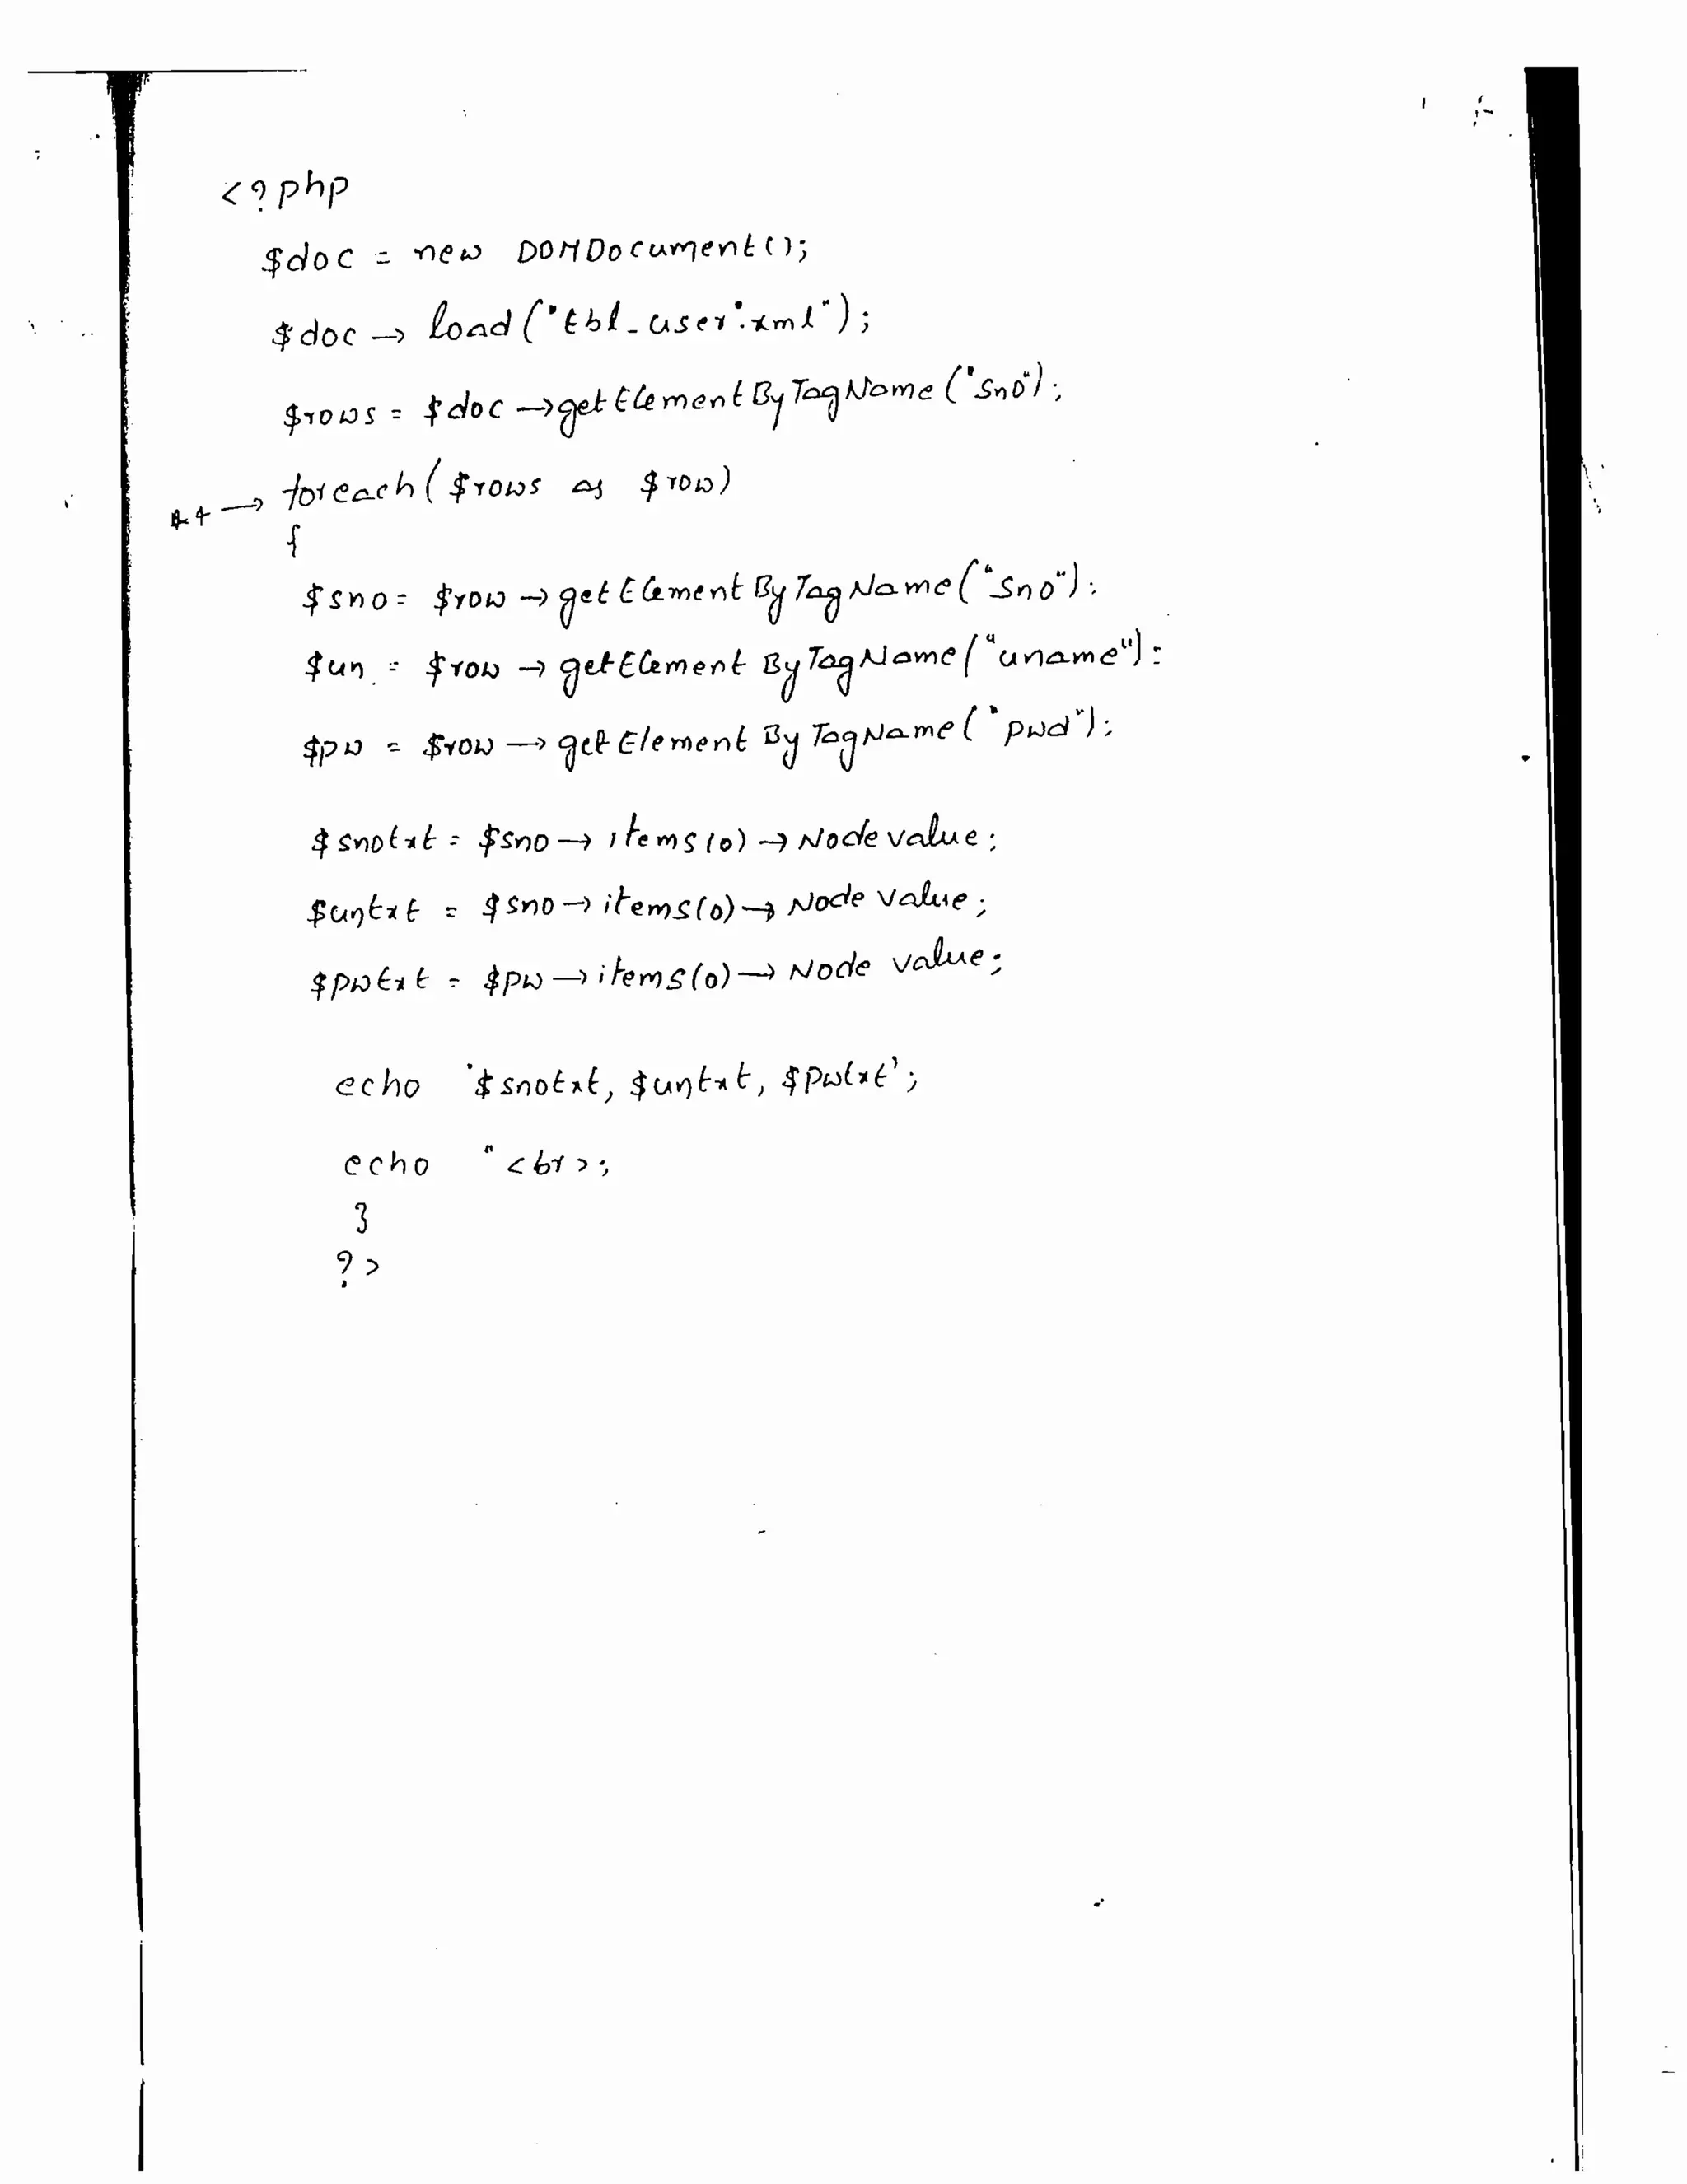 <?php
$doc = new DOMDocument();
$doc → load("tbl_user.xml");
$rows = $doc →getElementByTagName("sno");
→ foreach($rows as $row)
{
$sno = $row → getElementByTagName("sno");
$un = $row → getElementByTagName("uname");
$pw = $row → getElementByTagName("pwd");
$snotxt = $sno → items(0) → Nodevalue;
$untxt = $sno → items(0) → Node value;
$pwtxt = $pw → items(0) → Node value;
echo '$snotxt, $untxt, $pwtxt';
echo "<br>;
}
?>